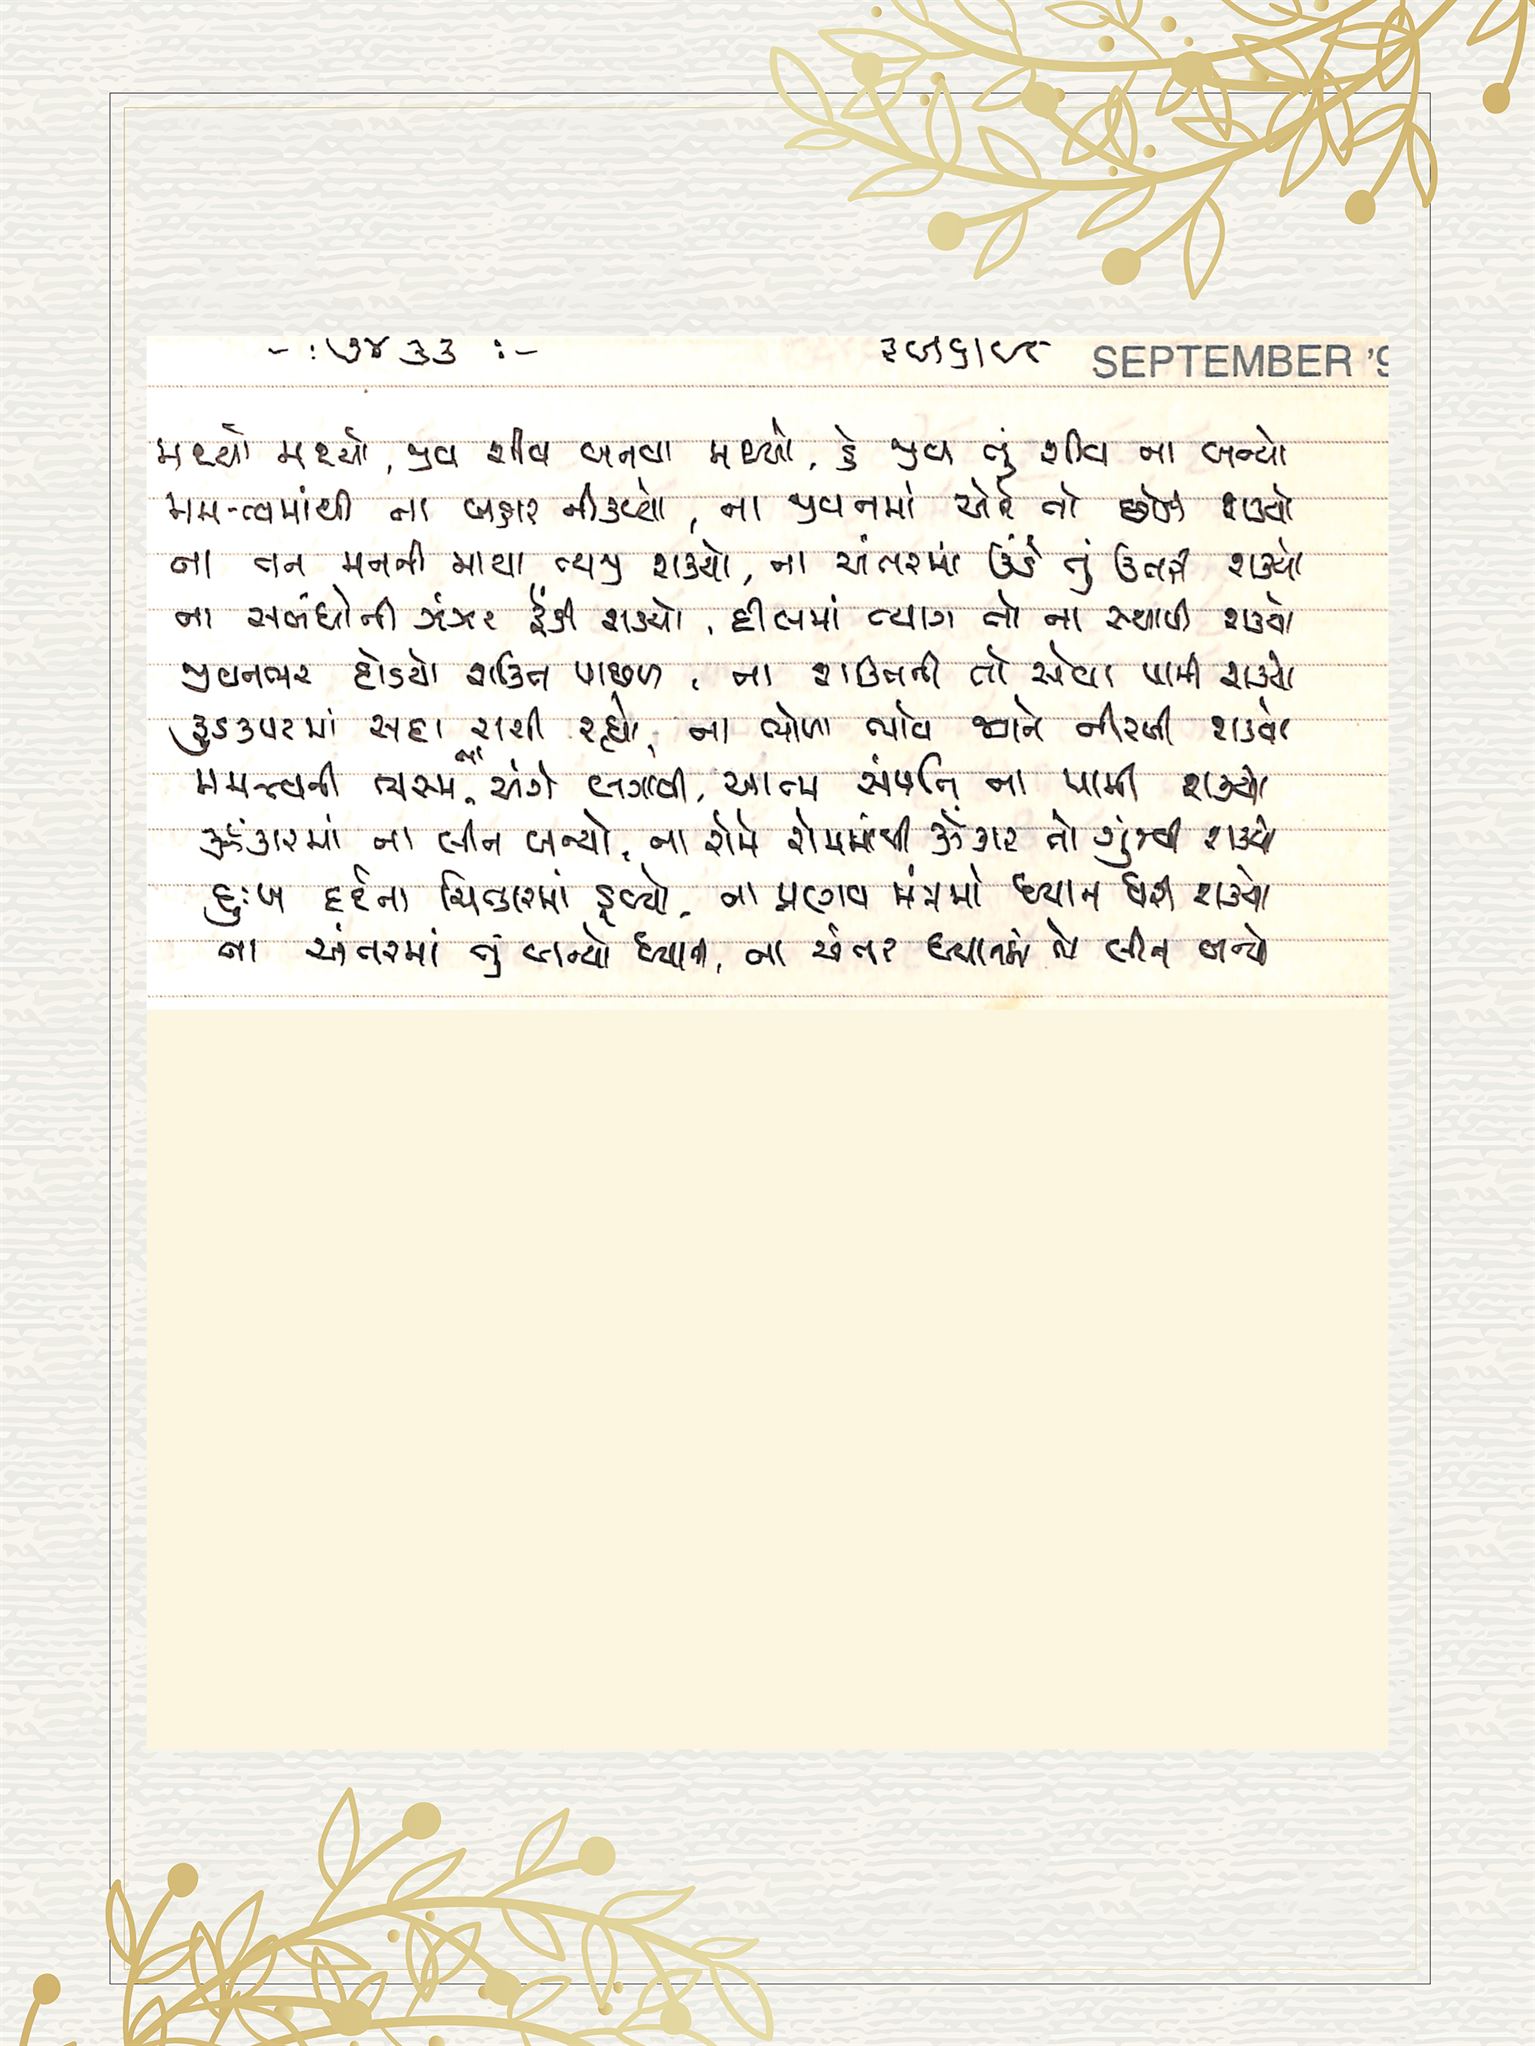 -: ૭૪૩૩ :- SEPTEMBER '9
મથ્યો મથ્યો, જીવ શીવ બનવા મથ્યો, કે જીવ તું શીવ ના બન્યો
મમત્વમાંથી ના બહાર નીકળ્યો, ના જીવનમાં એને તો છોડી શક્યો
ના તન મનની માયા ત્યજી શક્યો, ના અંતરમાં ઉંડે તું ઉતરી શક્યો
ના સબંધોની ઝંઝર ફેંકી શક્યો, દીલમાં ત્યાગ તો ના સ્થાપી શક્યો
જીવનભર દોડયો શક્તિ પાછળ, ના શક્તિની તો સેવા પામી શક્યો
કુડકપટમાં સદા રાચી રહ્યો, ના ભોળા ભાવ જાને નીરખી શક્યો
મમત્વની ભસ્મ ના અંગે લગાવી, આત્મ સંપત્તિ ના પામી શક્યો
ૐકારમાં ના લીન બન્યો, ના રોમે રોમમાંથી ૐકાર તો ગુંજવી શક્યો
દુઃખ દર્દના ચિત્કારમાં ડૂબ્યો, ના પ્રણવ મંત્રમાં ધ્યાન ધરી શક્યો
ના અંતરમાં તું બન્યો ધ્યાની, ના અંતર ધ્યાનમાં લીન બન્યો